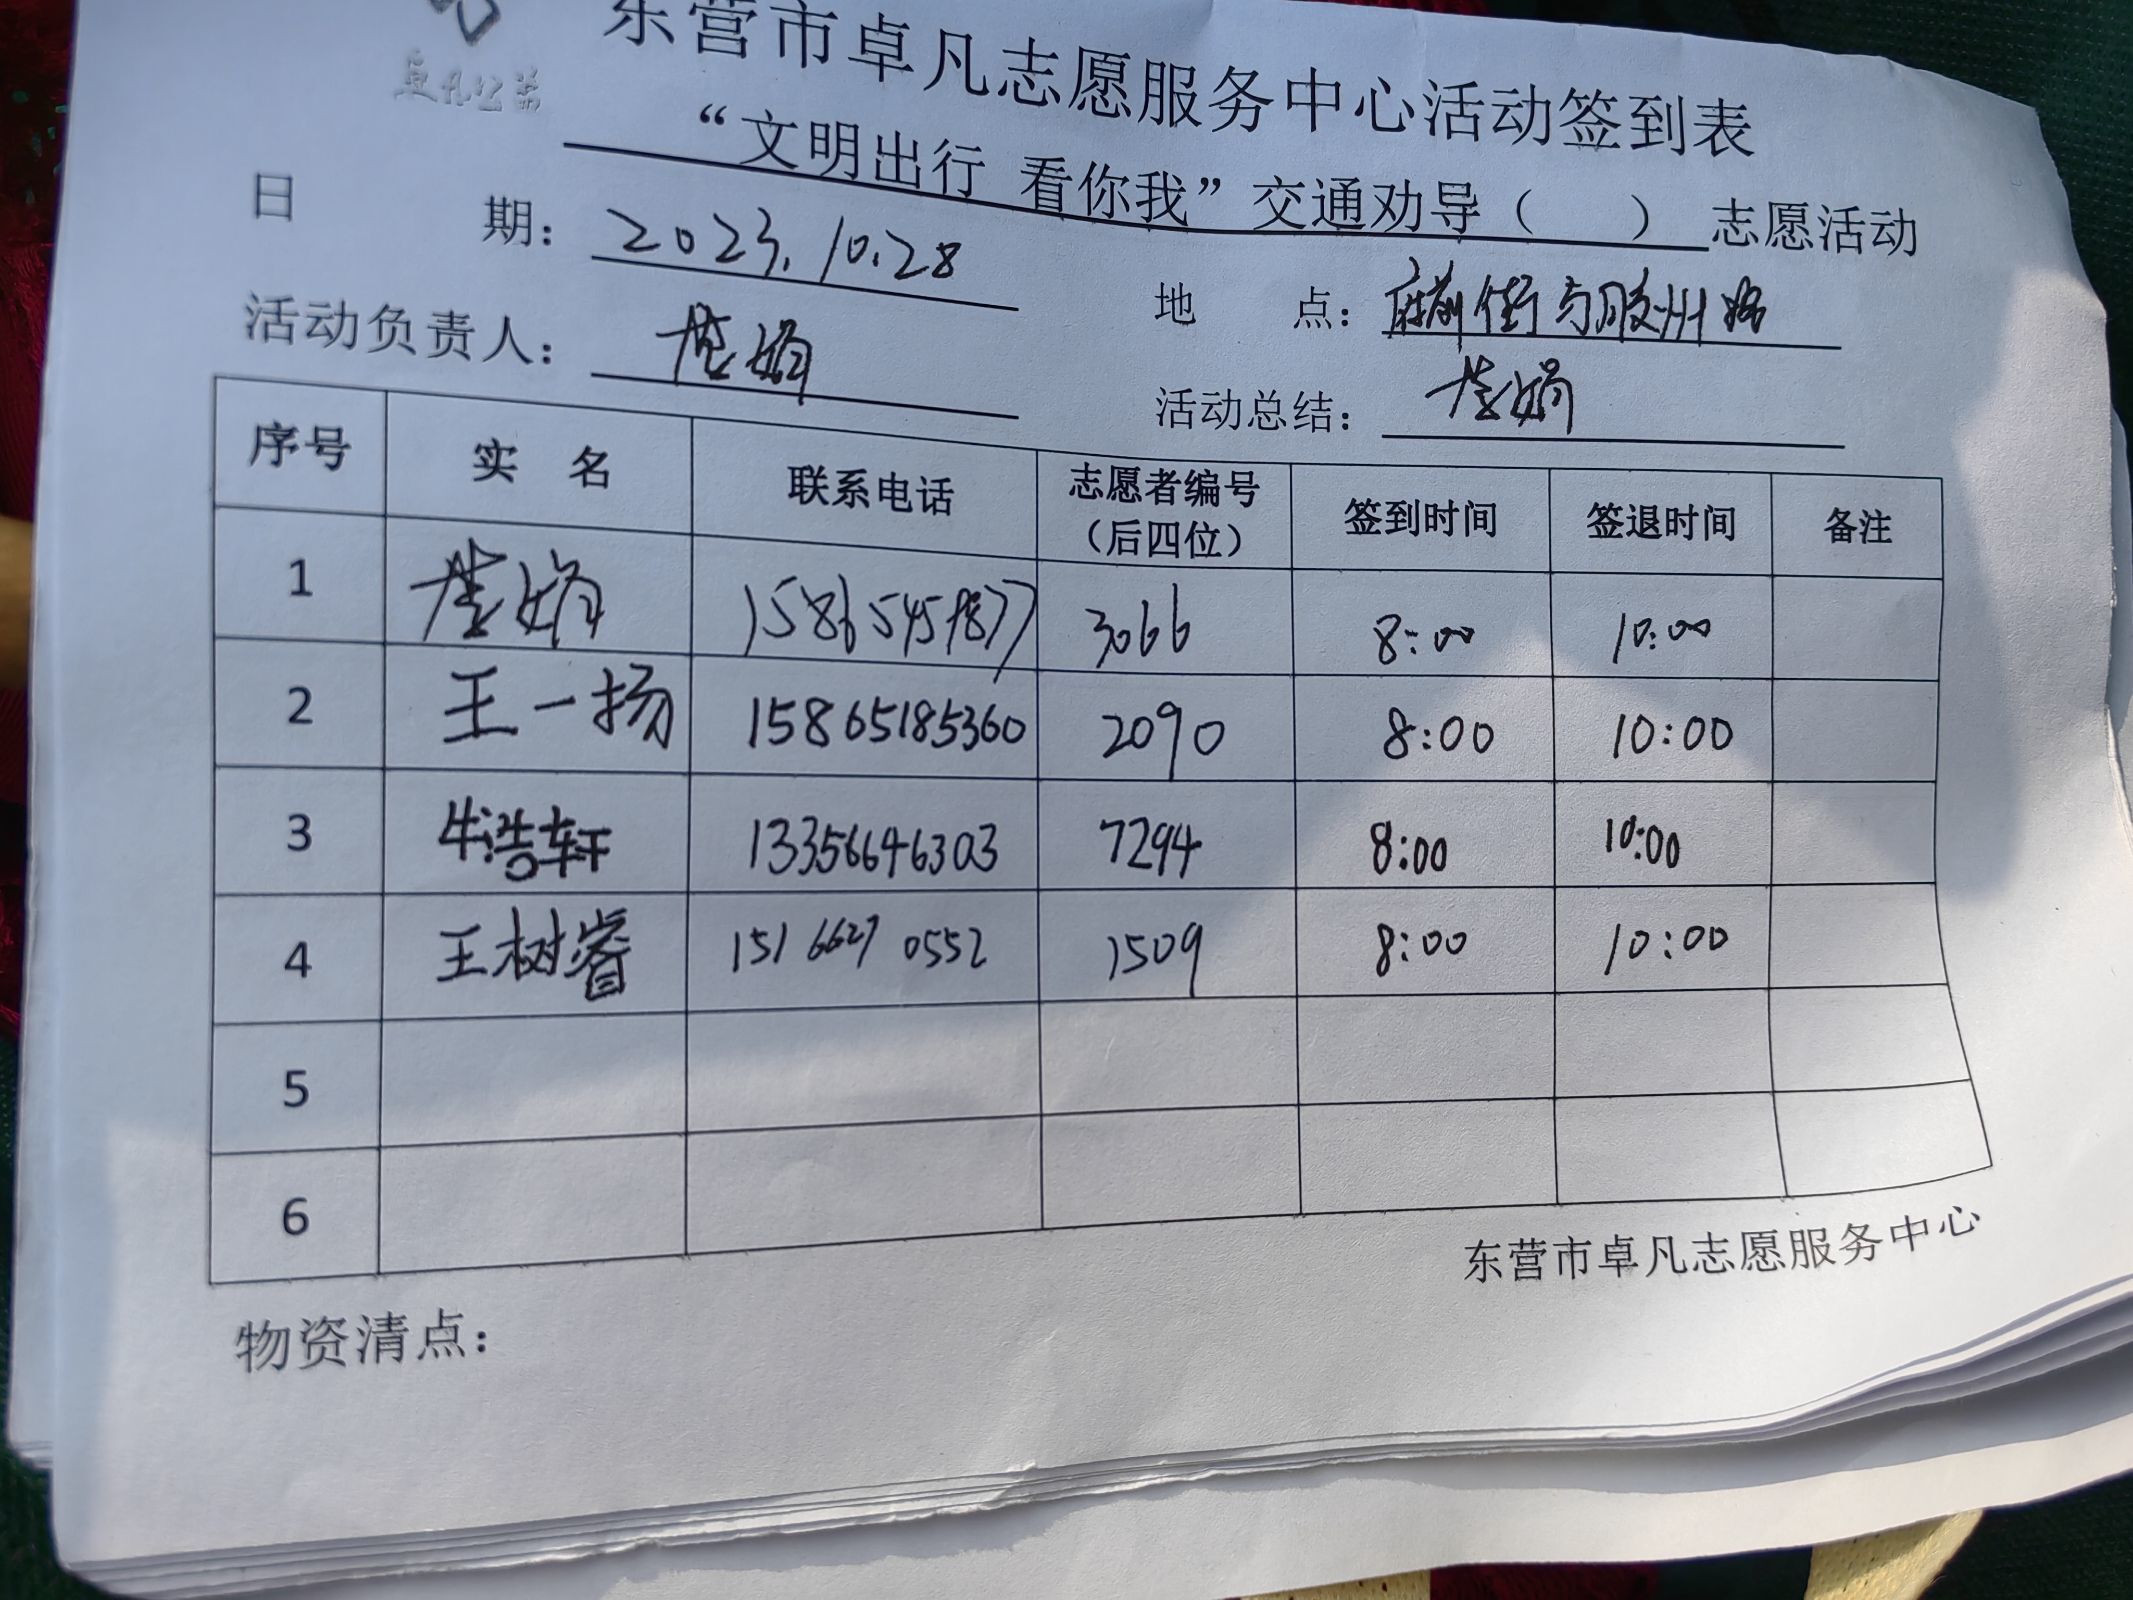 卓凡公益
东营市卓凡志愿服务中心活动签到表
“文明出行 看你我”交通劝导（ ）志愿活动
日 期：2023.10.28
地 点：府前街与胶州路
活动负责人：娟
活动总结：娟
序号 实 名 联系电话 志愿者编号（后四位） 签到时间 签退时间 备注
1 娟 15865459877 3066 8:00 10:00
2 王一扬 15865185360 2090 8:00 10:00
3 牛浩轩 13356646303 7294 8:00 10:00
4 王树睿 15166270552 1509 8:00 10:00
5
6
东营市卓凡志愿服务中心
物资清点：